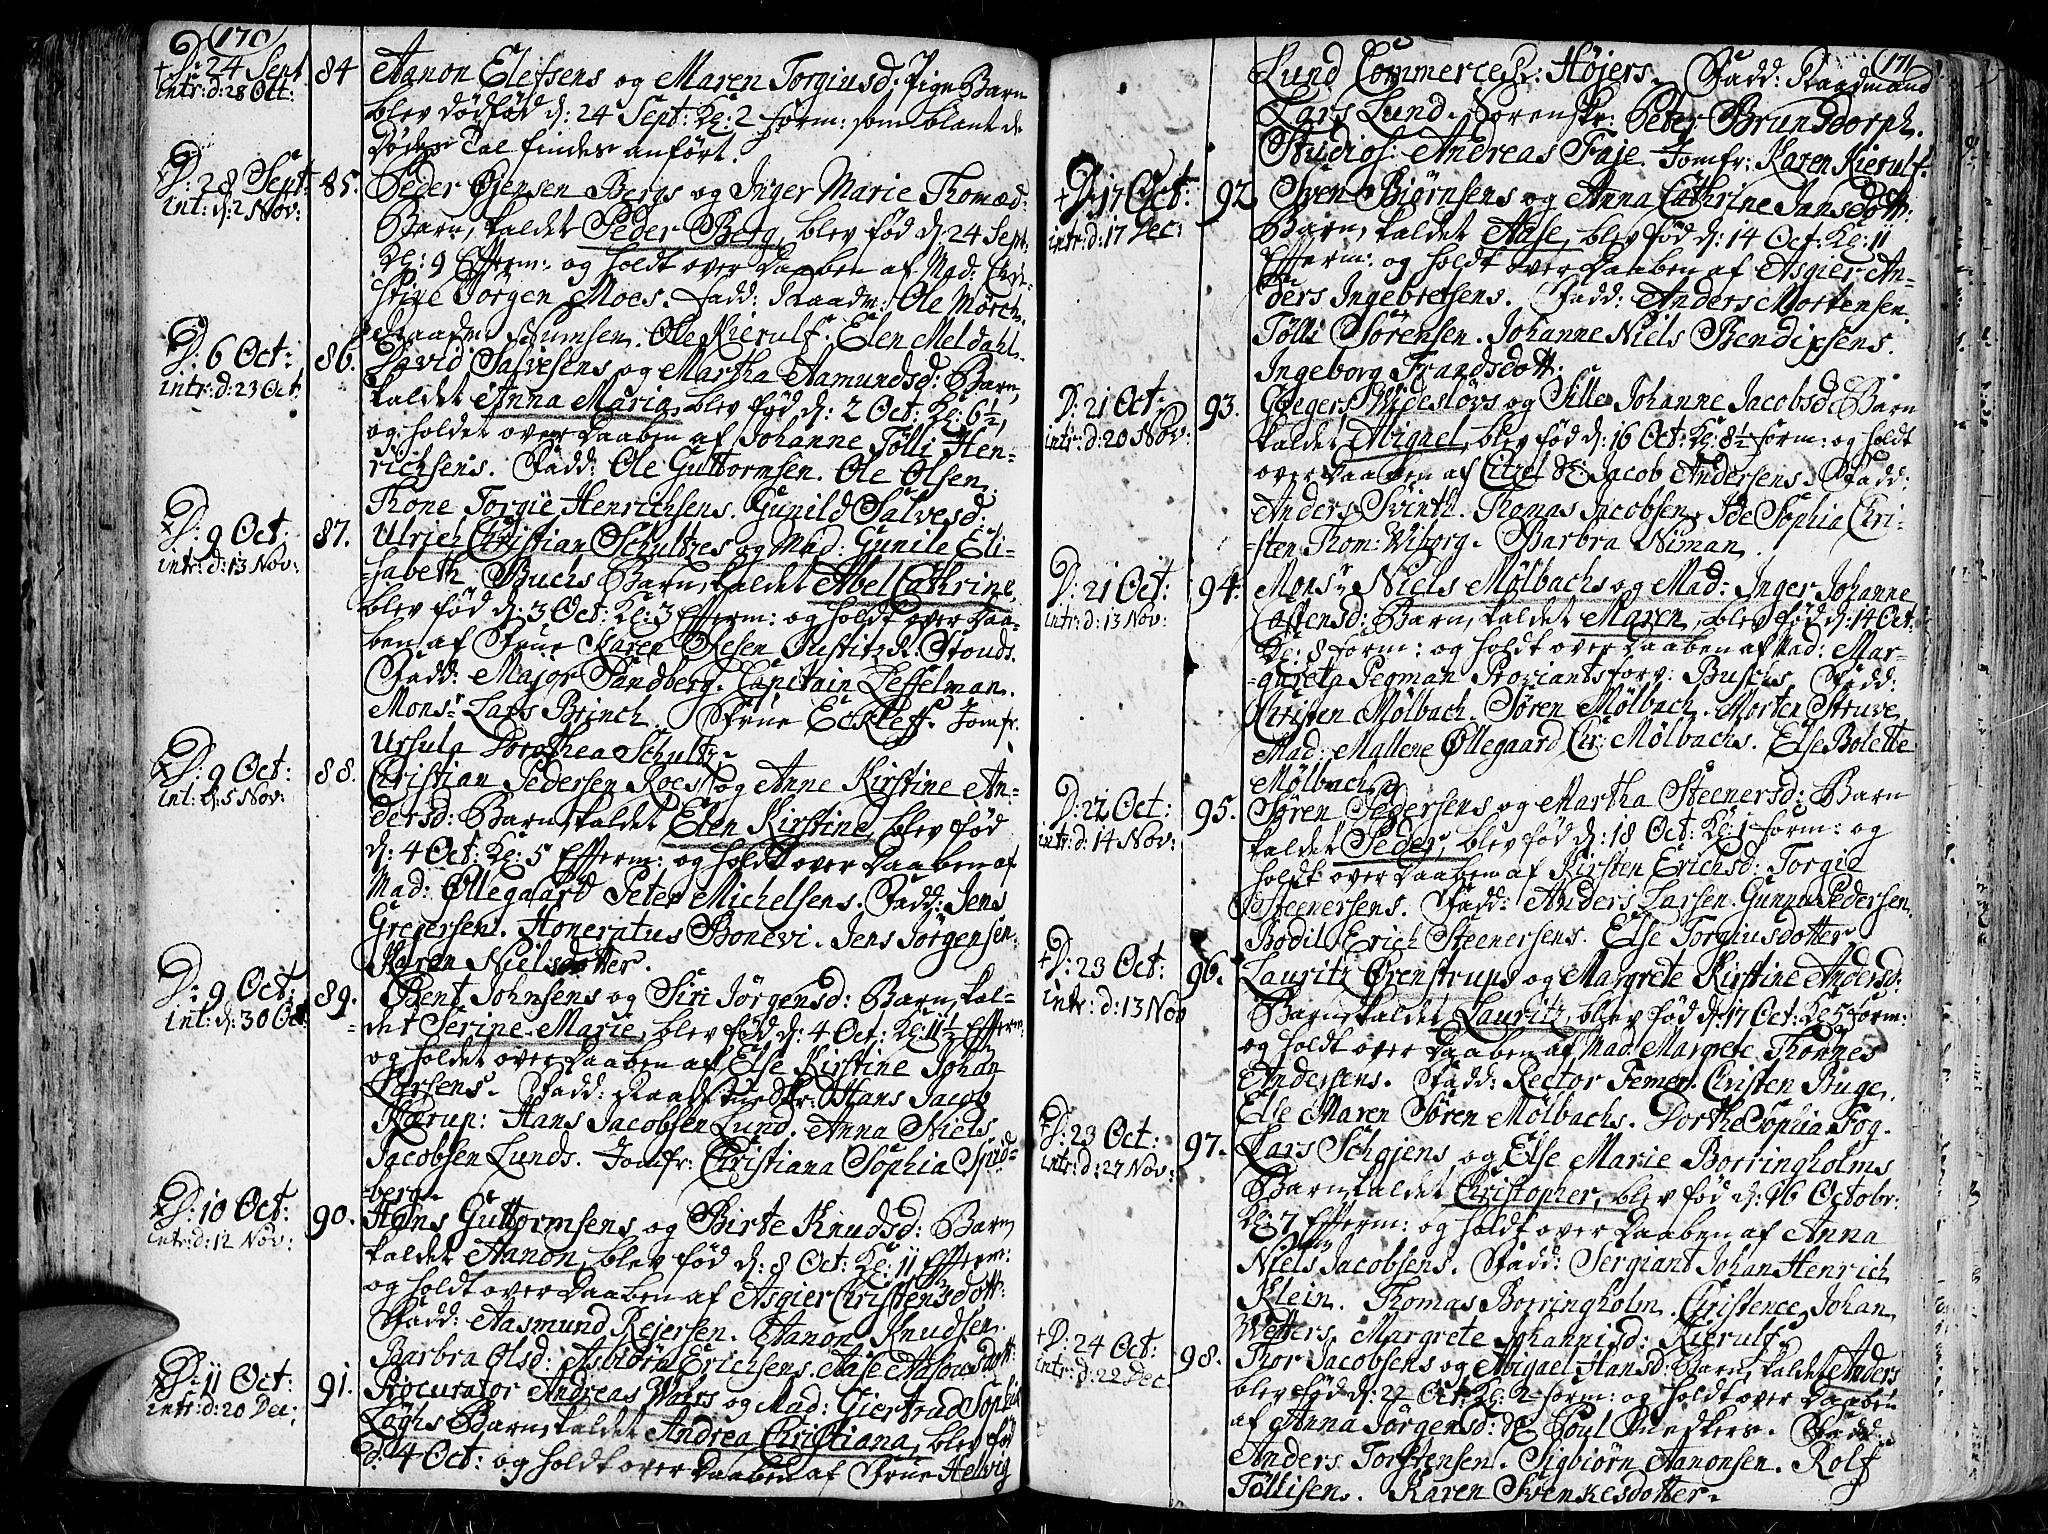 170
+ D: 24 Sept 84 Aanon Elefsens og Maren Torgiusd: Pige Barn
intr: d: 28 Oct: blev dødfød d: 24 Sept: Kl: 2 form: som blant de
Dødes Tal findes anført.
D: 28 Sept: 85. Peder Øjensen Bergs og Inger Marie Thomæd:
int: d: 2 Nov: Barn, kaldet Peder Berg, blev fød d: 24 Sept:
Kl: 9 Efterm: og holdt over Daaben af Mad: Chri-
stine Jørgen Moes. Fadd: Raadm: Ole Mørch.
Raadm: Numsen. Ole Kierulf. Elen Meldahl.
D: 6 Oct: 86. David Salvesens og Martha Aamundsd: Barn,
intr: d: 23 Oct kaldet Anna Maria, blev fød d: 2 Oct: Kl: 6½,
og holdet over Daaben af Johanne Tølli Hen-
richsens. Fadd: Ole Guttormsen. Ole Olsen.
Thone Torgie Henrichsens. Gunild Salvesd:
D: 9 Oct: 87. Ulrich Christian Schultzes og Mad: Gunile Eli-
intr: d: 13 Nov: sabeth Buchs Barn, kaldet Abel Cathrine,
blev fød d: 3 Oct: Kl: 3 Efterm: og holdt over Daa-
ben af Frue Karen Resen Justitz R. Stouds.
Fadd: Major Sandberg. Capitain Leffelman.
Monsr: Lars Brinch. Frue Eckleff. Jomfr.
Ursula Dorothea Schultz.
D: 9 Oct: 88. Christian Pedersen Roes og Anne Kirstine An-
int: d: 5 Nov: dersd: Barn, kaldet Elen Kirstine, blev fød
d: 4 Oct: Kl: 5 Efterm: og holdt over Daaben af
Mad: Øllegaard Peter Michelsens. Fadd: Jens
Gregersen. Honeratus Bonevi. Jens Jørgensen.
Karen Nielsdotter.
D: 9 Oct: 89. Bent Johnsens og Siri Jørgensd: Barn, kal-
int: d: 30 Oct det Serine Marie, blev fød d: 4 Oct: Kl: 11½ Efterm:
og holdet over Daaben af Else Kirstine Johan
Larsens. Fadd: Raadstueskr: Hans Jacob
Kærup: Hans Jacobsen Lund. Anna Niels
Jacobsen Lunds. Jomfr: Christiana Sophia Spid-
berg.
D: 10 Oct: 90. Hans Guttormsens og Birte Knudsd: Barn,
intr: d: 12 Nov: kaldet Aanon, blev fød d: 8 Oct: Kl: 11 Efterm:
og holdt over Daaben af Asgier Christensdott:
Fadd: Aasmund Rejersen. Aanon Knudsen.
Barbra Olsd: Asbiørn Erichsens. Aase
D: 11 Oct: 91. Procurator Andreas og Mad: Giertrud Sophia
intr: d: 20 Dec: Barn, kaldet Andrea Christiana, blev fød
d: 4 Oct: og holdt over Daaben af Frue Helvig
171
Lund Commerce R: Højers. Fadd: Raadmand
Lars Lund. Sorenskr: Peter Brunsdorph.
Studios: Andreas Faje. Jomfr: Karen Kierulf.
+ D: 17 Oct: 92 Sven Bjørnsens og Anna Cathrine Jansdott:
intr: d: 17 Dec: Barn, kaldet Aase, blev fød d: 14 Oct: Kl: 11
Efterm: og holdt over Daaben af Asgier An-
ders Ingebretsens. Fadd: Anders Mortensen.
Tølli Sørensen. Johanne Niels Bendixsens.
Ingeborg Frandsdott:
D: 21 Oct: 93. og Sille Johanne Jacobsd: Barn
intr: d: 20 Nov: kaldet Abigael, blev fød d: 16 Oct: Kl: 8½ form: og holdt
over Daaben af Jacob Andersens. Fadd:
Anders Svinth. Thomas Jacobsen. Ide Sophia Chri-
sten Thom: Wiborg. Barbra Niman.
D: 21 Oct: 94. Monsr Niels Mølbachs og Mad: Inger Johanne
intr: d: 13 Nov: Castensd: Barn, kaldet Maren, blev fød d: 14 Oct:
Kl: 8 form: og holdt over Daaben af Mad: Mar-
gareta Pegman Proviantsforv: Buschs. Fadd:
Christen Mølbach. Søren Mølbach. Morten Struve.
Mad: Mallene Øllegaard Chr: Mølbachs. Else Bolette
Mølbach.
D: 22 Oct: 95. Søren Pedersens og Martha Steenersd: Barn
intr: d: 14 Nov: kaldet Peder, blev fød d: 18 Oct: Kl: 1 form: og
holdt over Daaben af Kirsten Erichsd: Torgie
Steenersens. Fadd: Anders Larsen. Gunner Pedersen.
Bodil Erich Steenersens. Else Torgiusdotter.
+ D: 23 Oct: 96. Lauritz Ørenstrups og Margrete Kirstine Andersd:
intr: d: 13 Nov Barn, kaldet Lauritz, blev fød d: 17 Oct: Kl: 5 form:
og holdt over Daaben af Mad: Margrete Thonnes
Andersens. Fadd: Rector Femer. Christen Buge.
Else Maren Søren Mølbachs. Dorthe Sophia Fog.
D: 23 Oct: 97. Lars Schojens og Else Marie Borringholms
intr: d: 27 Nov: Barn, kaldet Christopher, blev fød d: 16 Octobr:
Kl: 7 Efterm: og holdt over Daaben af Anna
Niels Jacobsens. Fadd: Sergiant Johan Henrich
Klein. Thomas Borringholm. Christence Johan
Wetters. Margrete Johannisd: Kierulf.
+ D: 24 Oct: 98. Thor Jacobsens og Abigael Hansd: Barn, kaldet Anders
intr: d: 22 Dec. blev fød d: 22 Oct: Kl: 2 form: og holdt over Daaben
af Anna Jørgensd: Poul Fadd:
Anders Torstensen. Sigbiørn Aanonsen. Rolf
Tøllisen. Karen Svenkesdotter.